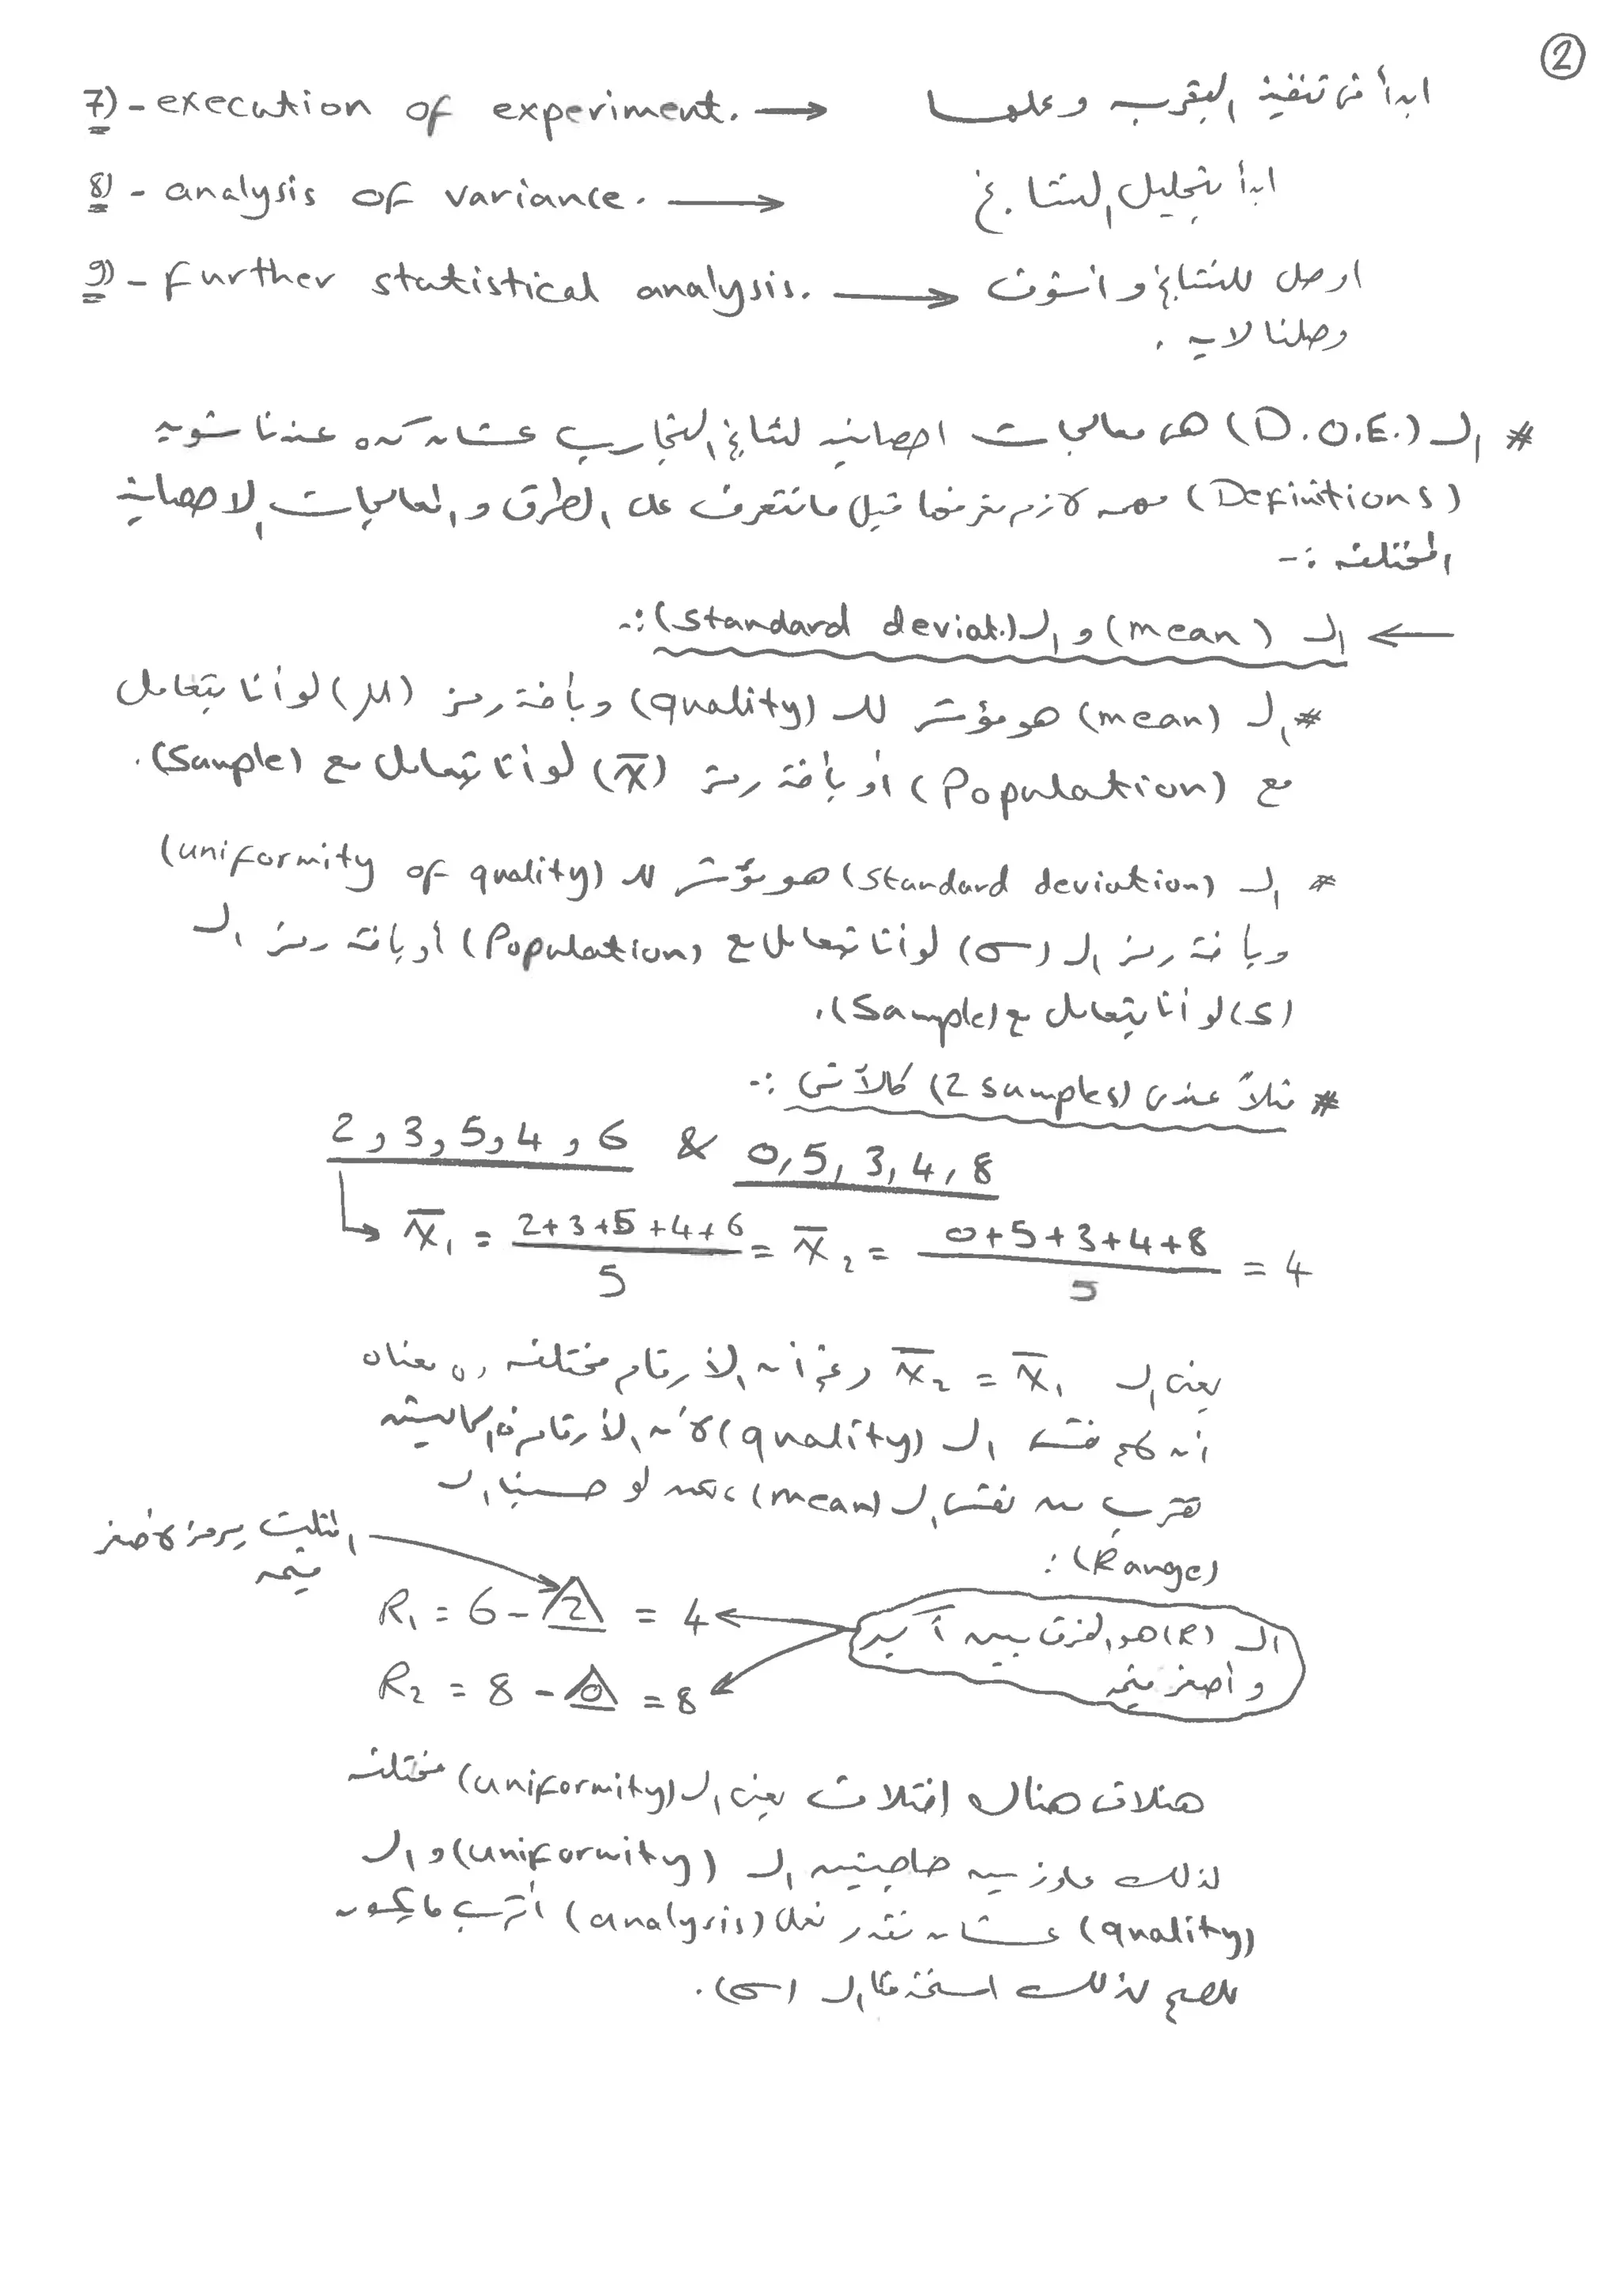 2
7)- execution of experiment. → ابدأ فى تنفيذ التجربه وعملها
8)- analysis of variance. → ابدأ بتحليل النتايج
9)- further statistical analysis. → اوصل للنتايج و اشوف
وصلنا لايه .
# الـ (D.O.E.) هى معالجات احصائيه لنتائج التجارب عشان كده عندنا شوية
(Definitions) مهمه لازم نعرفها قبل ما نتعرف على الطرق والمعالجات الاحصائية
المختلفه :-
← الـ (mean) و الـ (standard deviat.) :-
# الـ (mean) هو مؤشر للـ (quality) وبأخذ رمز (μ) لو أنا بتعامل
مع (Population) أو بأخذ رمز (x̄) لو أنا بتعامل مع (Sample).
# الـ (standard deviation) هو مؤشر للـ (uniformity of quality)
وبأخذ رمز الـ (σ) لو أنا بتعامل مع (Population) أو بأخذ رمز الـ
(S) لو أنا بتعامل مع (Sample).
# مثلاً عندى (2 samples) كالآتى :-
2, 3, 5, 4, 6 & 0, 5, 3, 4, 8
x̄₁ = (2+3+5+4+6)/5 = x̄₂ = (0+5+3+4+8)/5 = 4
يعنى الـ x̄₁ = x̄₂ رغم أن الأرقام مختلفه ده معناه
أن لهم نفس الـ (quality) لأن الأرقام فى الحالتين
تقرب من نفس الـ (mean)، لكن لو حسبنا الـ
(Range) :
المثلث يرمز لأصغر
قيمه
R₁ = 6 - 2 = 4
R₂ = 8 - 0 = 8
الـ (R) هو الفرق بين أكبر
و أصغر قيمه
هنلاقى هناك اختلاف يعنى الـ (uniformity) مختلفه
لذلك عاوزين حاجتين الـ (uniformity) و الـ
(quality) عشان نقدر نعمل (analysis) أقرب ما يكون
للصح لذلك استخدمنا الـ (σ).